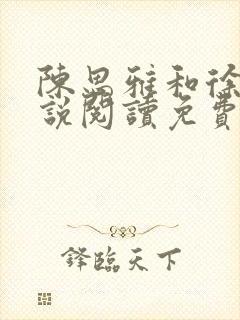 陳思雅和徐
說閱讀免費
鋒臨天下